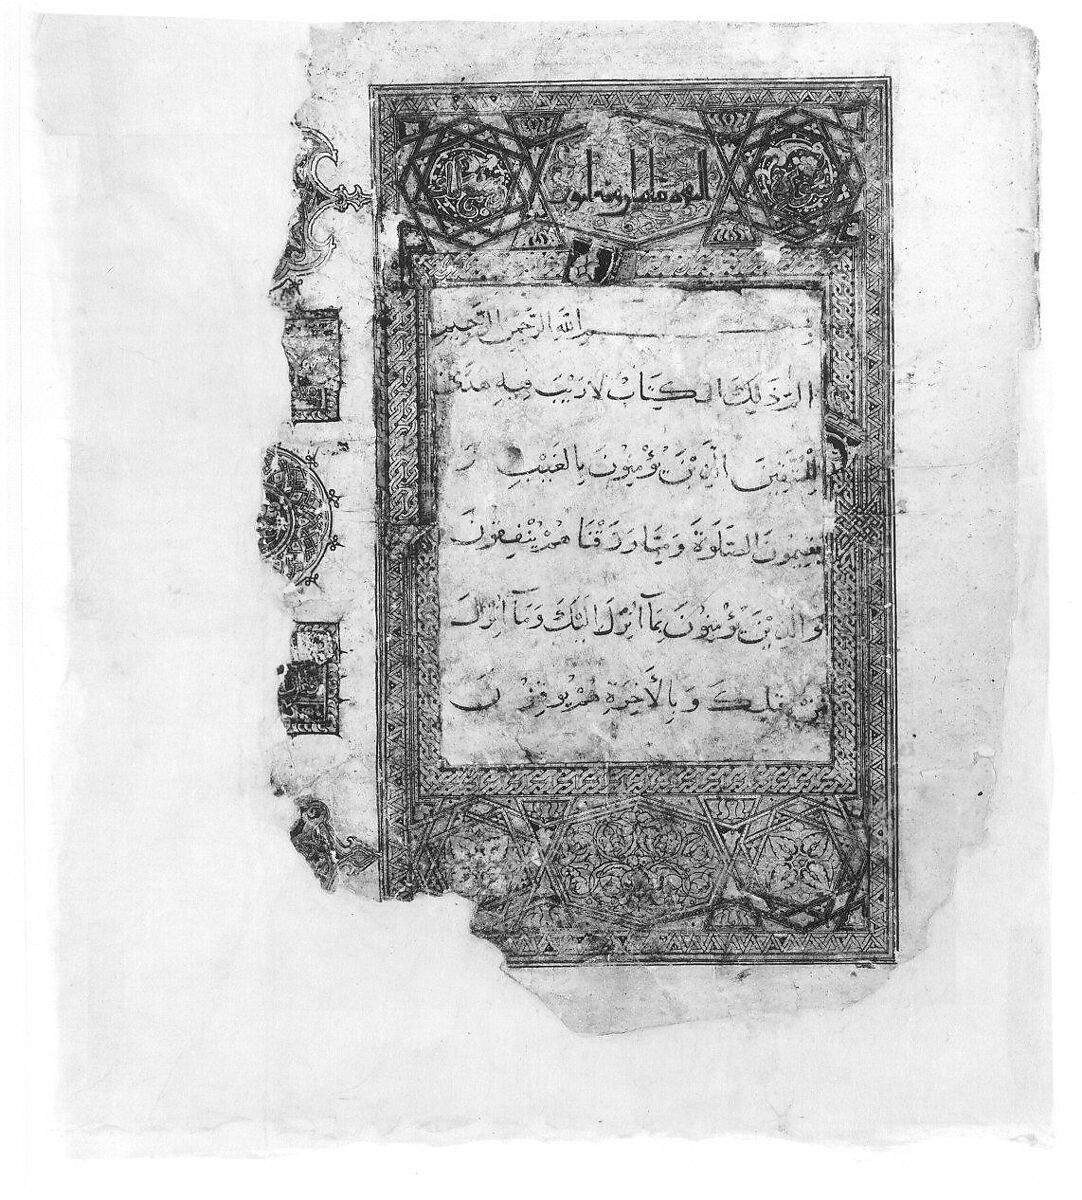 بسم الله الرحمن الرحيم
الم ذَلِكَ الْكِتَابُ لَا رَيْبَ فِيهِ هُدًى
لِلْمُتَّقِينَ الَّذِينَ يُؤْمِنُونَ بِالْغَيْبِ وَ
يُقِيمُونَ الصَّلَوةَ وَمِمَّا رَزَقْنَا هُمْ يُنْفِقُونَ
وَالَّذِينَ يُؤْمِنُونَ بِمَا أُنْزِلَ إِلَيْكَ وَمَا أُنْزِلَ
مِنْ قَبْلِكَ وَبِالْأَخِرَةِ هُمْ يُوقِنُونَ